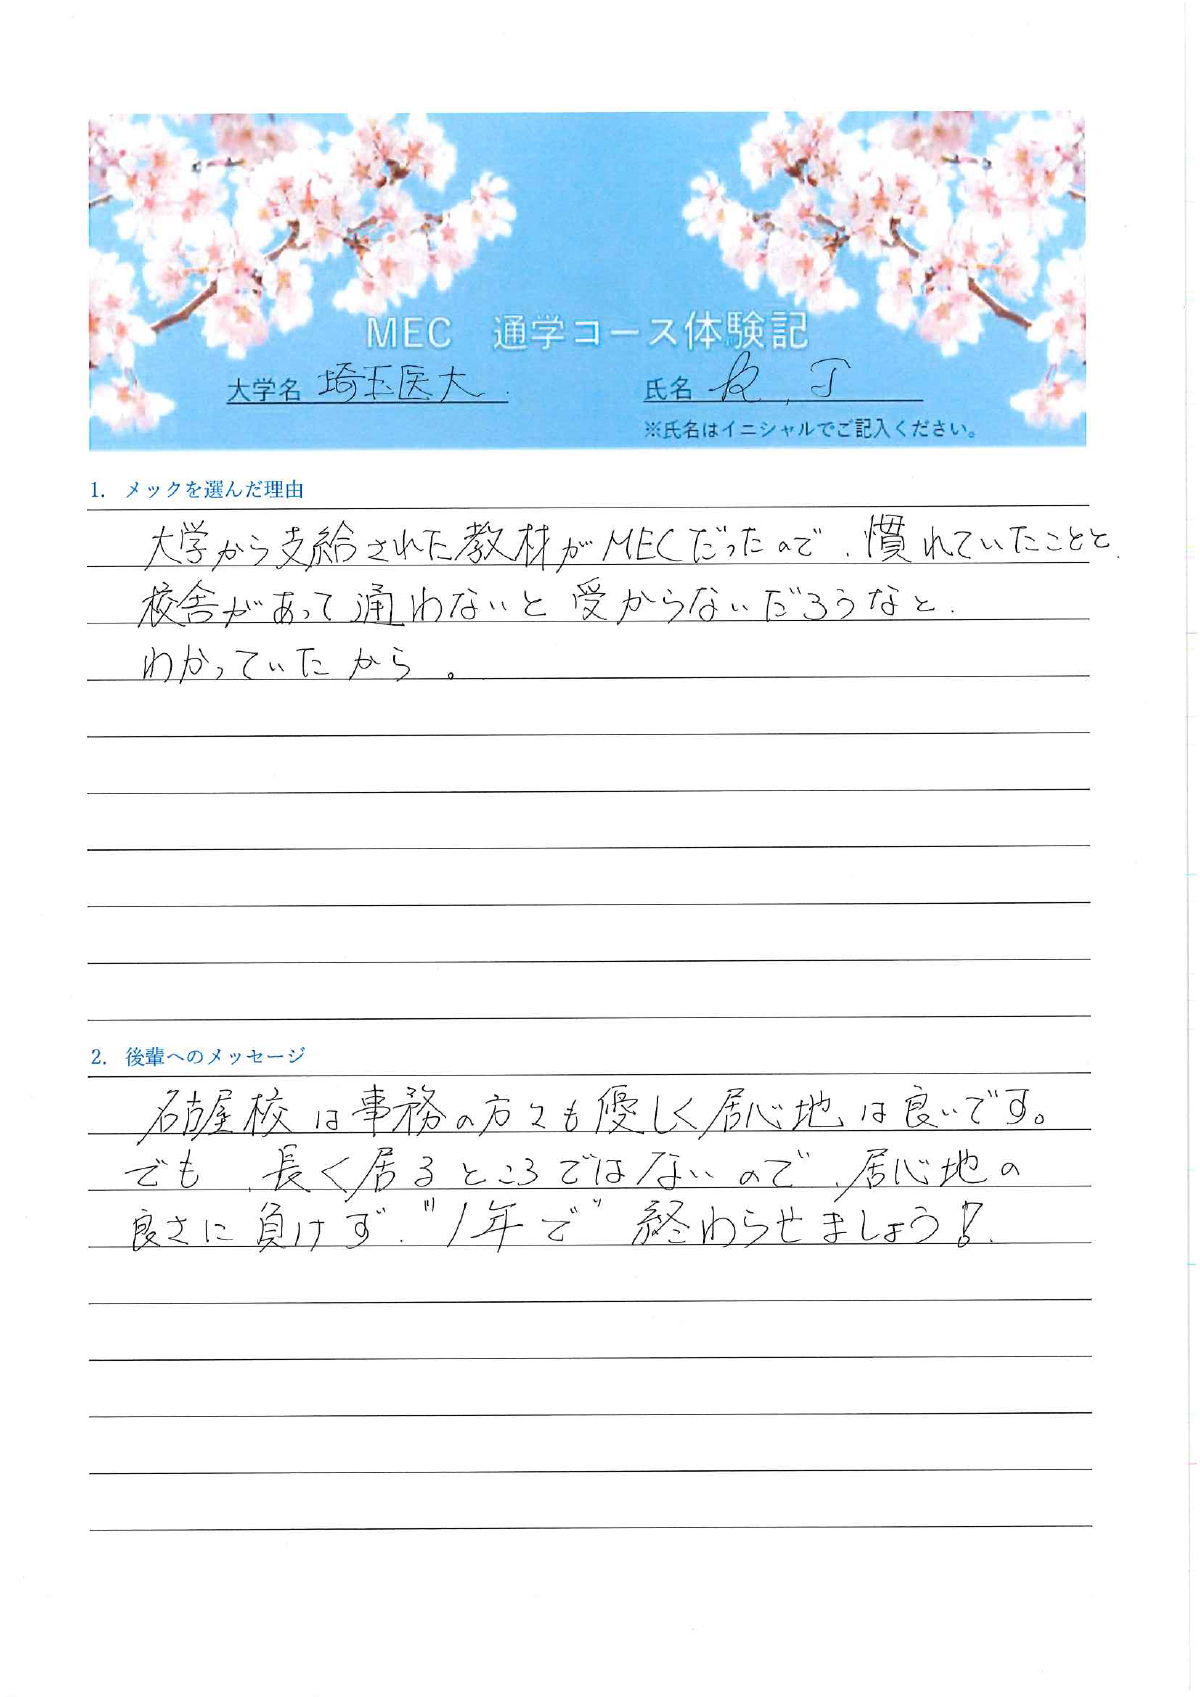 MEC 通学コース体験記
大学名 埼玉医大 氏名 R. J
※氏名はイニシャルでご記入ください。
1. メックを選んだ理由
大学から支給された教材がMECだったので、慣れていたことと、
校舎があって通わないと受からないだろうなと、
わかっていたから。
2. 後輩へのメッセージ
名古屋校は事務の方々も優しく居心地は良いです。
でも、長く居るところではないので、居心地の
良さに負けず、"1年で"終わらせましょう!